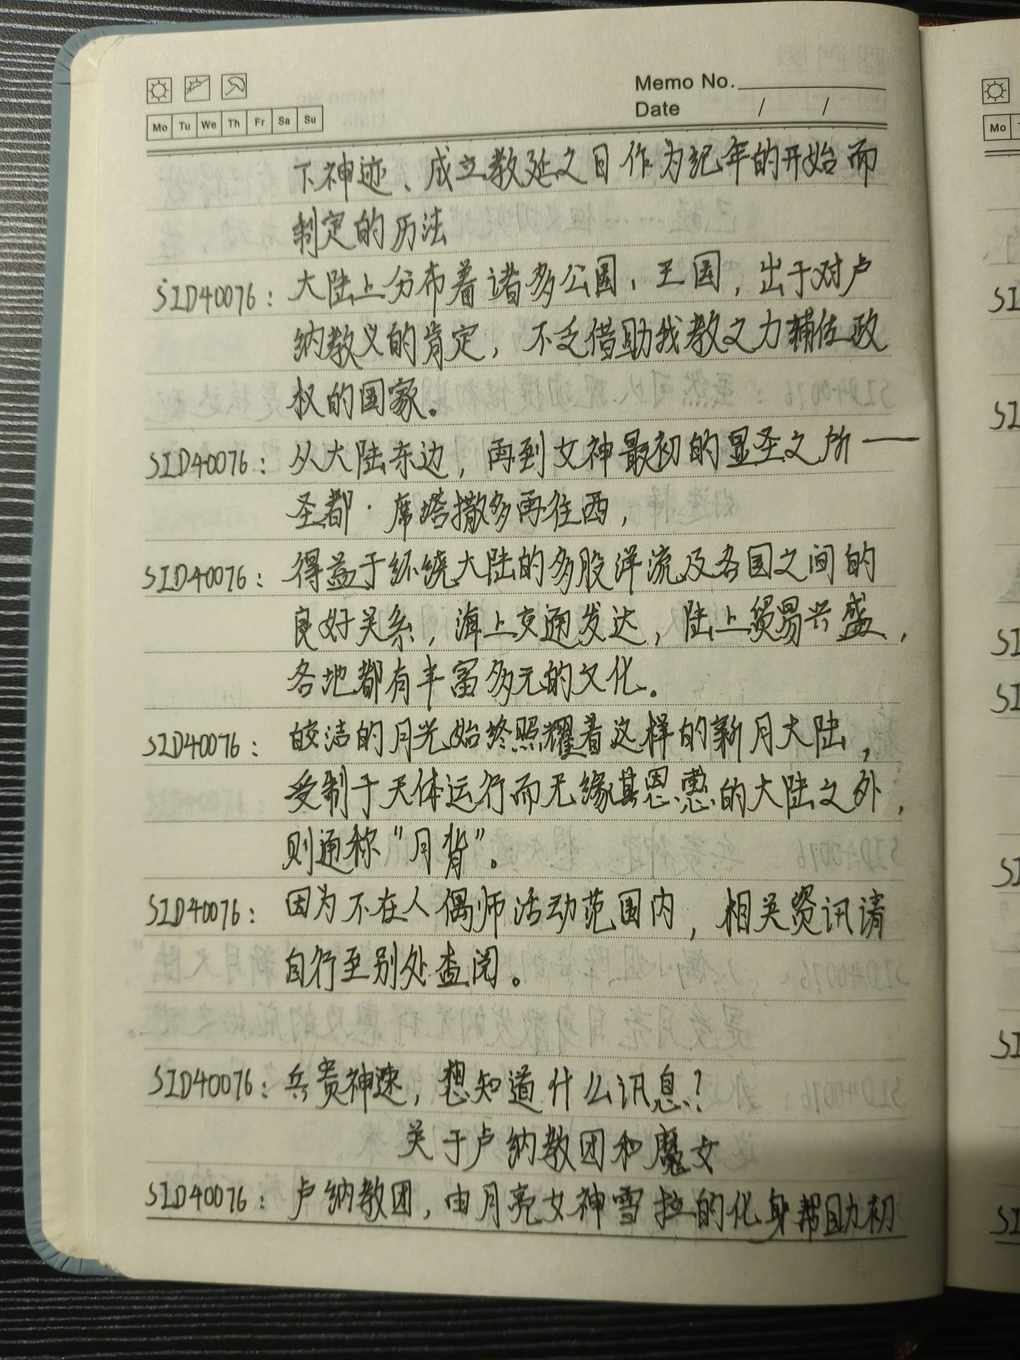 Memo No.
Mo Tu We Th Fr Sa Su
Date / /
下神迹、成立教廷之日作为纪年的开始而
制定的历法
SID40076：大陆上分布着诸多公国、王国，出于对卢
纳教义的肯定，不乏借助我教之力辅佐政
权的国家。
SID40076：从大陆东边，再到女神最初的显圣之所——
圣都·席塔撒多再往西，
SID40076：得益于环绕大陆的多股洋流及各国之间的
良好关系，海上交通发达，陆上贸易兴盛，
各地都有丰富多元的文化。
SID40076：皎洁的月光始终照耀着这样的新月大陆，
受制于天体运行而无缘其恩惠的大陆之外，
则通称“月背”。
SID40076：因为不在人偶师活动范围内，相关资讯请
自行至别处查阅。
SID40076：兵贵神速，想知道什么讯息？
关于卢纳教团和魔女
SID40076：卢纳教团，由月亮女神雪拉的化身帮助初
Mo
SI
SI
SI
SI
SI
SI
SI